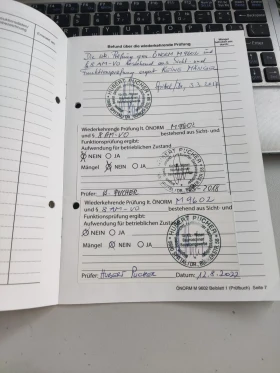 Befund über die wiederkehrende Prüfung
Die wk. Prüfung gem. ÖNORM M9601 und
§ 8 AM-VO bestehend aus Sicht- und
Funktionsprüfung ergab: Keine Mängel
HUBERT PUCHER
Wiederkehrende Prüfung lt. ÖNORM M9601
und § 8 AM-VO bestehend aus Sicht- und
Funktionsprüfung ergibt:
Aufwendung für betrieblichen Zustand
NEIN JA
Mängel NEIN JA
Prüfer: H. PUCHER 2018
Wiederkehrende Prüfung lt. ÖNORM M9602
und § 8 AM-VO bestehend aus Sicht- und
Funktionsprüfung ergibt:
Aufwendung für betrieblichen Zustand
NEIN JA
Mängel NEIN JA
HUBERT PUCHER
Prüfer: HUBERT PUCHER Datum: 12.8.2022
ÖNORM M 9602 Beiblatt 1 (Prüfbuch) Seite 7